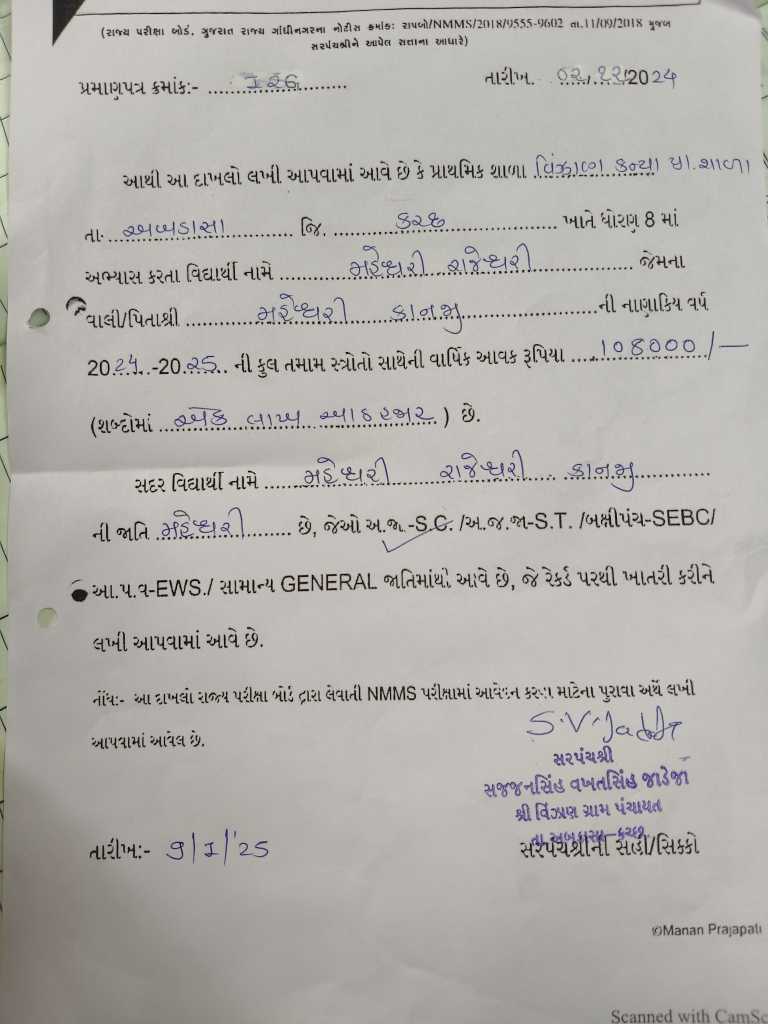 (રાજ્ય પરીક્ષા બોર્ડ, ગુજરાત રાજ્ય ગાંધીનગરના નોટીસ ક્રમાંક: રાપબો/NMMS/2018/9555-9602 તા.11/09/2018 મુજબ
સરપંચશ્રીને આપેલ સત્તાના આધારે)
પ્રમાણપત્ર ક્રમાંક:- ..............
તારીખ. 02/12/2024
આથી આ દાખલો લખી આપવામાં આવે છે કે પ્રાથમિક શાળા વિંઝાણ કન્યા પ્રા.શાળા
તા. અબડાસા ........ જિ. ........ કચ્છ ........ ખાતે ધોરણ 8 માં
અભ્યાસ કરતા વિદ્યાર્થી નામે ........ મહેશ્વરી રાજેશ્વરી ........ જેમના
વાલી/પિતાશ્રી ........ મહેશ્વરી કાનજી ........ ની નાણાકિય વર્ષ
2024-2025 ની કુલ તમામ સ્ત્રોતો સાથેની વાર્ષિક આવક રૂપિયા ..... 108000/-
(શબ્દોમાં એક લાખ આઠ હજાર) છે.
સદર વિદ્યાર્થી નામે ...... મહેશ્વરી રાજેશ્વરી કાનજી ........
ની જાતિ મહેશ્વરી ........ છે, જેઓ અ.જા.-S.C. /અ.જ.જા-S.T. /બક્ષીપંચ-SEBC/
આ.પ.વ-EWS./ સામાન્ય GENERAL જાતિમાંથી આવે છે, જે રેકર્ડ પરથી ખાતરી કરીને
લખી આપવામાં આવે છે.
નોંધ:- આ દાખલો રાજ્ય પરીક્ષા બોર્ડ દ્વારા લેવાતી NMMS પરીક્ષામાં આવેદન કરવા માટેના પુરાવા અર્થે લખી
આપવામાં આવેલ છે.
સરપંચશ્રી
સજજનસિંહ વખતસિંહ જાડેજા
શ્રી વિંઝાણ ગ્રામ પંચાયત
તા.અબડાસા-કચ્છ
તારીખ:- 9/1/'25
સરપંચશ્રીની સહી/સિક્કો
©Manan Prajapati
Scanned with CamSc